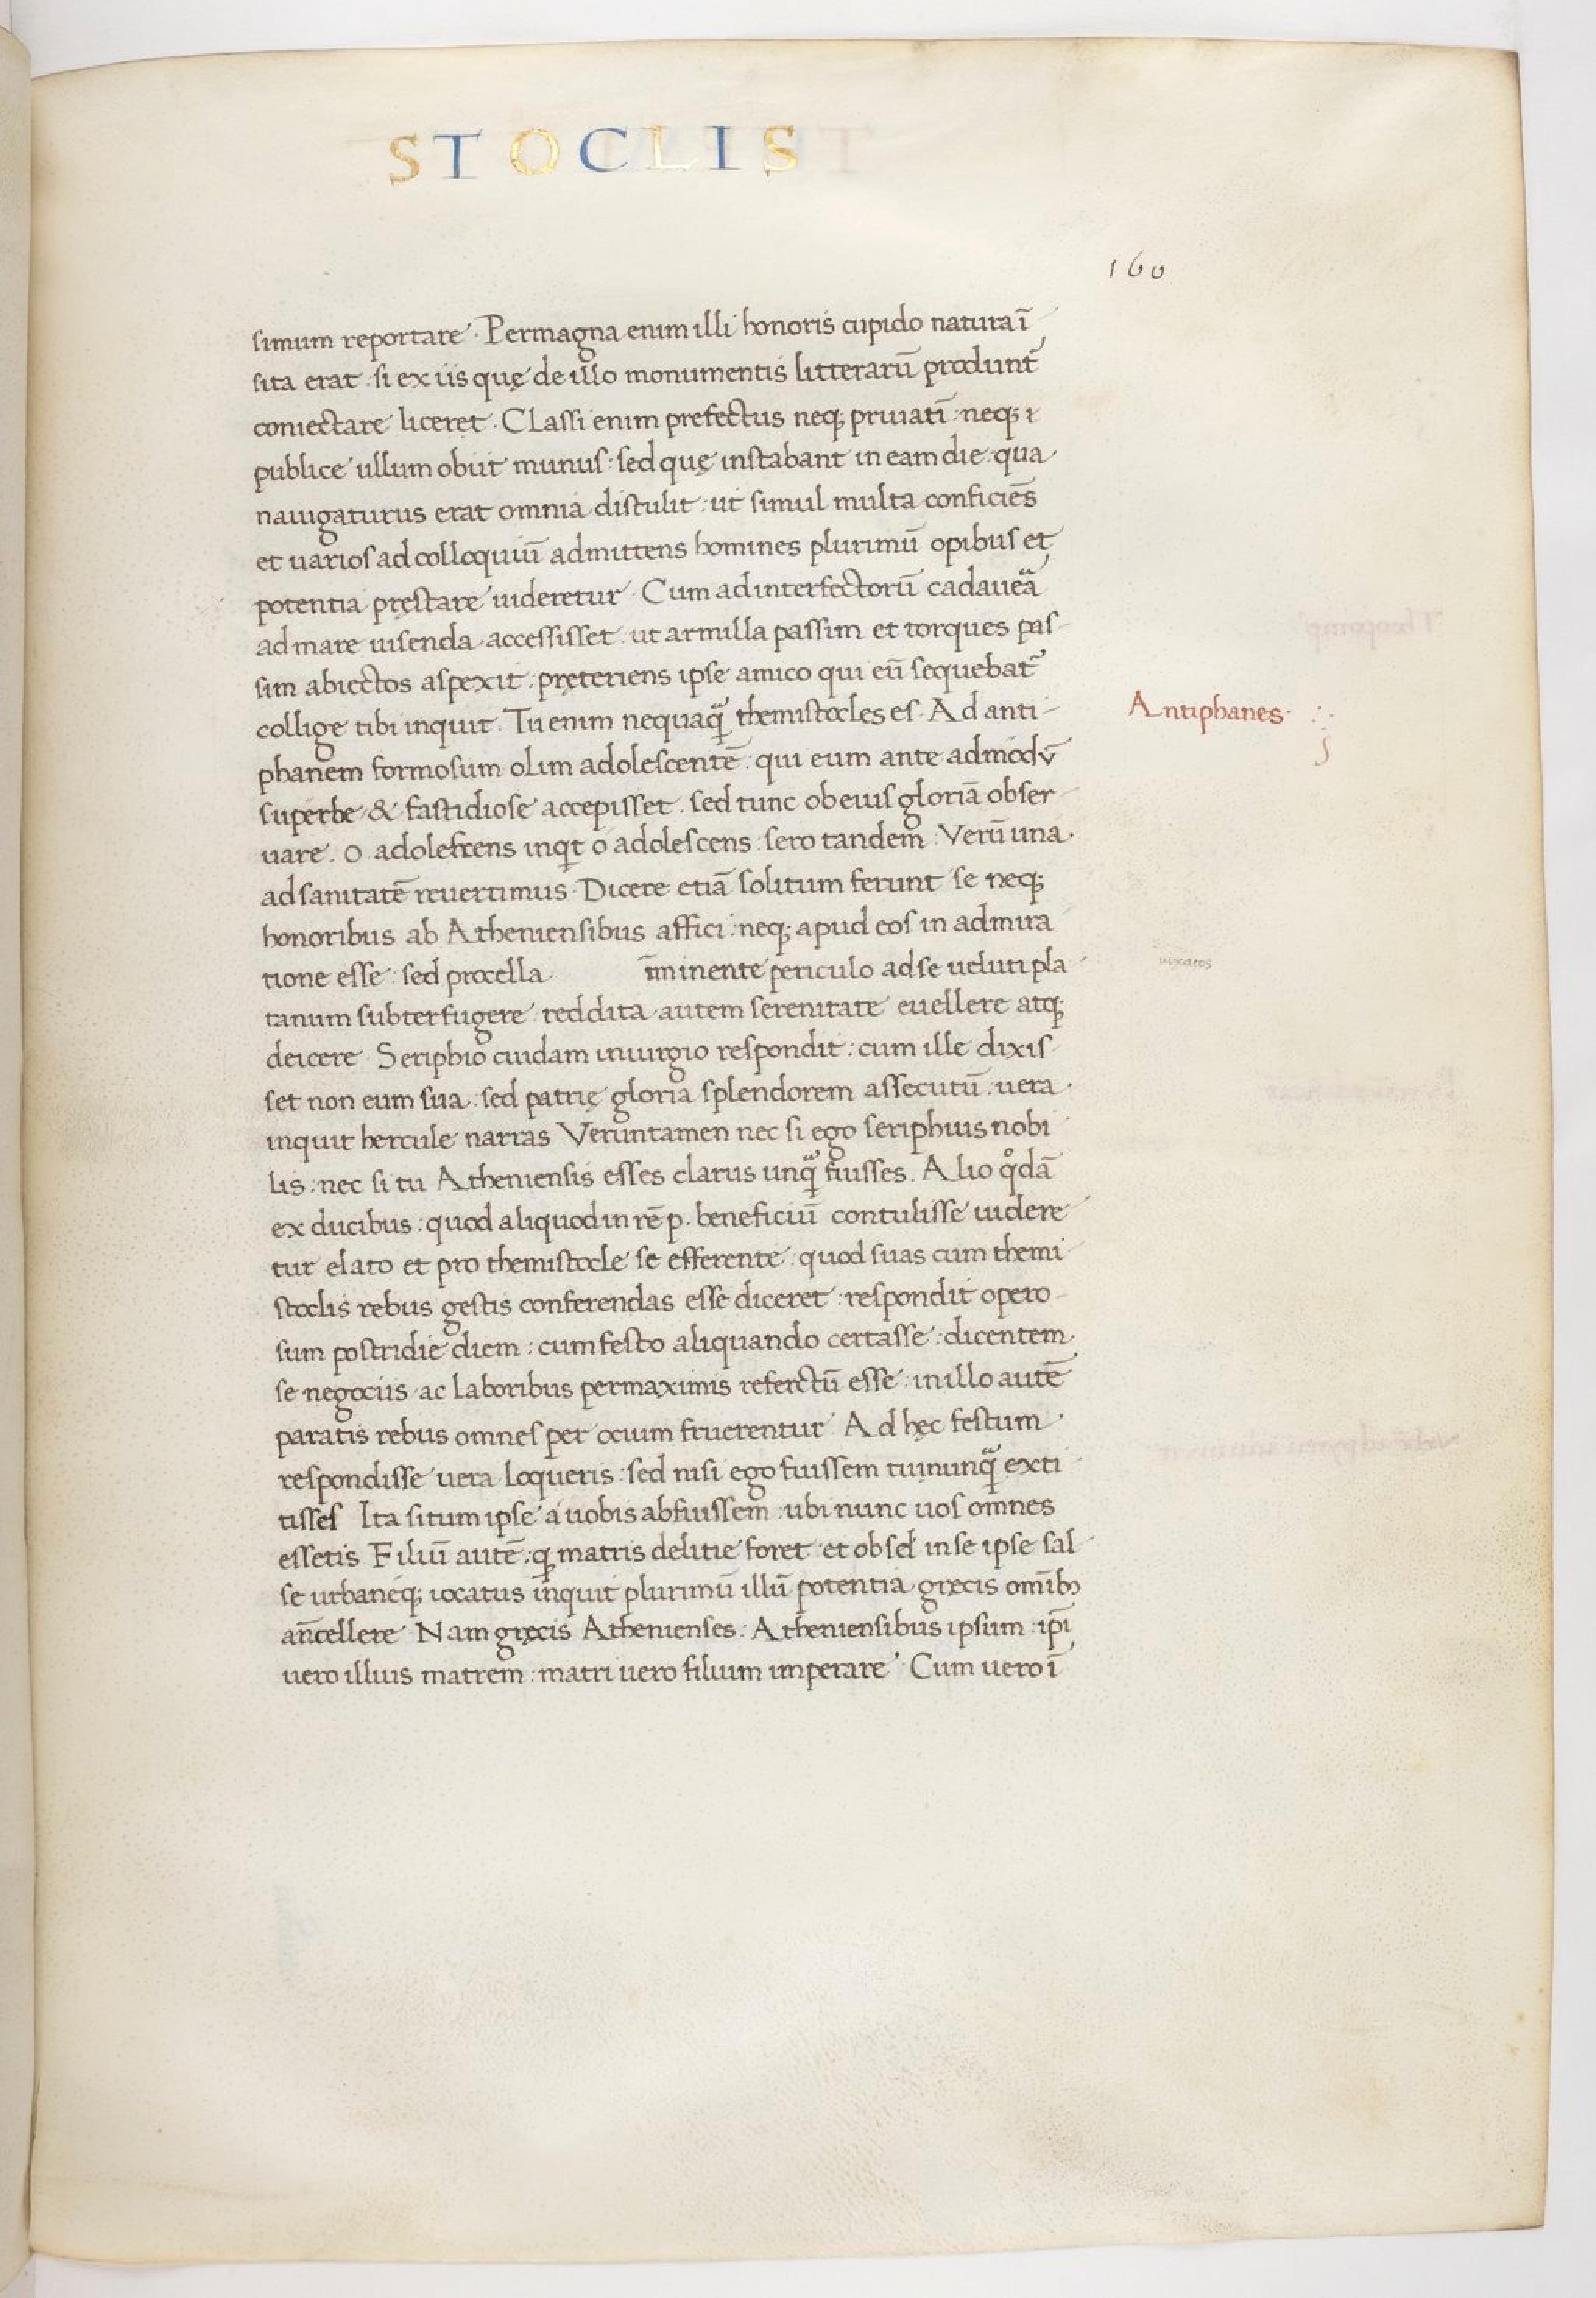 STOCLIS
160
simum reportare. Permagna enim illi honoris cupido natura ī
sita erat. si ex iis quę de illo monumentis litterarū produnt̄
coniectare liceret. Classi enim prefectus neq; priuatī: neq;
publice ullum obiit munus: sed quę instabant in eam die qua
nauigaturus erat omnia distulit: ut simul multa conficiēs
et uarios ad colloquiū admittens homines plurimū opibus et
potentia pręstare uideretur. Cum ad interfectorū cadauea
ad mare uisenda accessisset ut armilla passim et torques pas
sim abiectos aspexit: pręteriens ipse amico qui eū sequebat̄
collige tibi inquit. Tu enim nequaq̃ themistocles es. Ad anti-
Antiphanes.
phanem formosum olim adolescentē: qui eum ante admodv̄
superbe & fastidiose accepisset. sed tunc ob eius gloriā obser
uare. o adolescens inqt o adolescens: sero tandem. Verū una
ad sanitatē reuertimus. Dicere etiā solitum ferunt se neq;
honoribus ab Atheniensibus affici: neq; apud eos in admira
tione esse: sed procella īminente periculo ad se ueluti pla
tanum subterfugere reddita autem serenitate euellere atq;
deicere. Seriphio cuidam iniurgio respondit: cum ille dixis
set non eum sua: sed patrię gloria splendorem assecutū: uera
inquit hercule narras Veruntamen nec si ego seriphius nobi
lis: nec si tu Atheniensis esses clarus unq̃ fuisses. Alio qodā
ex ducibus: quod aliquod in rē p. beneficiū contulisse uidere
tur elato et pro themistocle se efferente: quod suas cum themi
stoclis rebus gestis conferendas esse diceret: respondit opero
sum postridie diem: cum festo aliquando certasse: dicentem
se negociis ac laboribus permaximis refertū esse: in illo autē
paratis rebus omnes per ocium fruerentur. Ad hęc festum
respondisse uera loqueris: sed nisi ego fuissem tu nunq̃ exti
tisses Ita si tum ipse a uobis abfuissem: ubi nunc uos omnes
essetis Filiū autē: q matris delitie foret et ob sed in se ipse sal
se urbaneq; iocatus inquit plurimū illū potentia gręcis omībꝰ
an̄cellere. Nam gręcis Athenienses: Atheniensibus ipsum: ip̄i
uero illius matrem: matri uero filium imperare. Cum uero ī